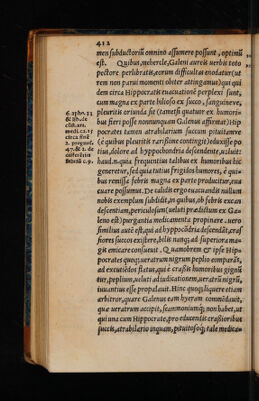 412
men subductoriũ omnino assumere possunt, optimũ
est. Quibus, mehercle, Galeni aureis verbis toto
pectore perlibratis, eorum difficultas enodatur (ut
rem non parui momenti obiter attingamus) qui qui
dem circa Hippocratis euacuationẽ perplexi sunt,
cum magna ex parte bilioso ex succo, sanguineve,
pleuritis oriunda sit (tametsi quatuor ex humori-
bus fieri posse nonnunquam Galenus affirmat) Hip
pocrates tamen atrabilarium succum pituitamve
(è quibus pleuritis rarissime contingit) eduxisse po
tius, dolore ad hyppocõdria descendente, asseruit:
haud.n. quia frequentius talibus ex humoribus hic
generetur, sed quia tutius frigidos humores, è qui-
bus remissa febris magna ex parte producitur, eua
cuare possumus. De calidis ergo euacuandis nullum
nobis exemplum subdidit, in quibus, ob febris excan
descentiam, periculosum (veluti præallidum ex Ga-
leno est) purgantia medicamenta propinare. vero
simillius autẽ est, qui ad hyppocõdria descẽdit, cras
siores succos existere, bilis nanq; ad superiora ma-
gis emicare consueuit. Quamobrem & ipse Hipp-
ocrates quoq; veratrum nigrum peplio comparãs,
ad excutiẽdos flatus, quiè crassis humoribus gignũ
tur, peplium, veluti ad iudicationem, veratrũ nigrũ,
iuuantius esse propalauit. Hinc quoq; liquere etiam
arbitror, quare Galenus eam hyeram commẽdauit,
quæ veratrum accipit, scammoniumq; non habet, ut
qui una cum Hippocrate, pro educendis crassioribus
succis, atrabilario inquam, pituitosoq; tale medica-
6. aph. 33
& lib. de
cõst. arti.
medi. ca. 15
circa finẽ
2. prognos.
47. & 2. de
differẽtiis
febriũ c. 9.